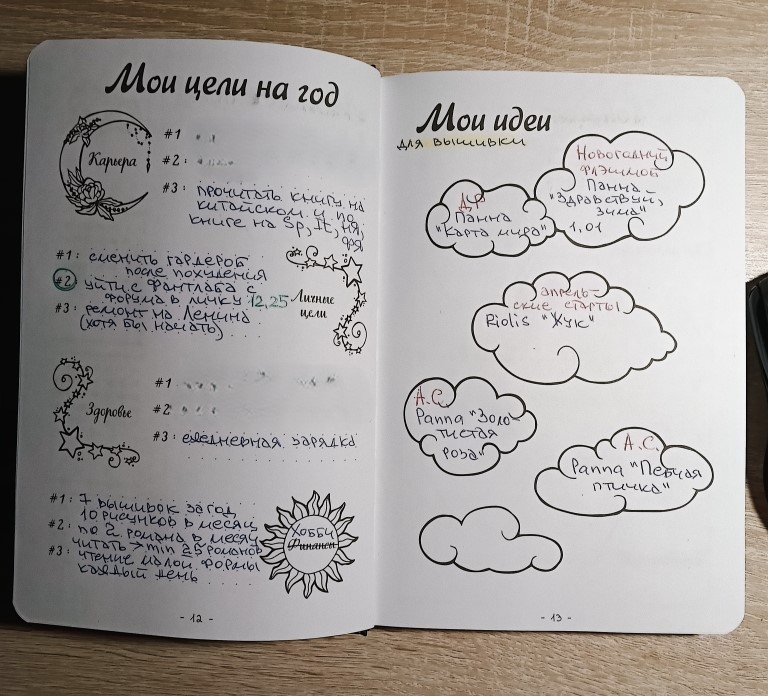 Мои цели на год
Карьера
#1
#2:
#3: прочитать книгу на
китайском и по
книге на Sp, It,
#1: сменить гардероб
после похудения
#2: уйти с Фантлаба с
форума в личку 12,25
#3: ремонт на Ленина
(хотя бы начать)
Личные
цели
Здоровье
#1
#2
#3: ежедневная зарядка
#1: 7 вышивок за год
10 рисунков в месяц
#2: по 2 романа в месяц
читать → min 25 романов
#3: чтение малой формы
каждый день
Хобби
Финансы
- 12 -
Мои идеи
для вышивки
Новогодний
флэшмоб
Панна
"Здравствуй,
зима"
1,01
ДР
Панна
"Карта мира"
апрель-
ские старты
Riolis "Жук"
А.С.
Panna "Золо-
тистая
роза"
А.С.
Panna "Певчая
птичка"
- 13 -